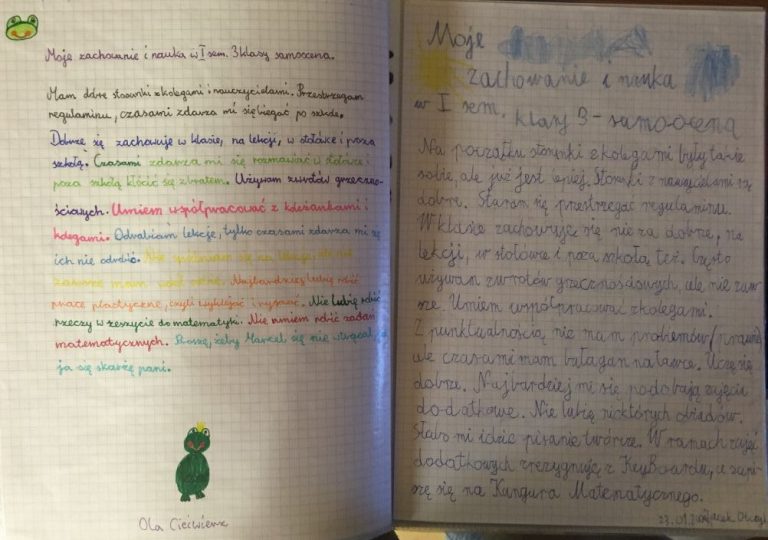 Moje zachowanie i nauka w I sem. 3 klasy samoocena.
Mam dobre stosunki z kolegami i nauczycielami. Przestrzegam
regulaminu, czasami zdarza mi się biegać po szkole.
Dobrze się zachowuje w klasie, na lekcji, w stołówce i poza
szkołą. Czasami zdarza mi się rozmawiać w stołówce i
poza szkołą kłócić się z bratem. Używam zwrotów grzeczno-
ściowych. Umiem współpracować z koleżankami i
kolegami. Odrabiam lekcje, tylko czasami zdarza mi się
ich nie odrobić. Nie spóźniam się na lekcje, ale nie
zawsze mam
Najbardziej lubię robić
prace plastyczne, czyli wyklejać i rysować. Nie lubię robić
rzeczy w zeszycie do matematyki. Nie umiem robić zadań
matematycznych. Proszę, żeby Marcel się nie wtrącał, a
ja się skarżę pani.
Ola
Moje
zachowanie i nauka
w I sem. klasy 3 - samoocena
Na początku stosunki z kolegami były takie
sobie, ale już jest lepiej. Stosunki z nauczycielami są
dobre. Staram się przestrzegać regulaminu.
W klasie zachowuję się nie za dobrze, na
lekcji, w stołówce i poza szkołą też. Często
używam zwrotów grzecznosciowych, ale nie zaw-
sze. Umiem współpracować z kolegami.
Z punktualnością nie mam problemów
ale czasami mam bałagan na ławce. Uczę się
dobrze. Najbardziej mi się podobają zajęcia
dodatkowe. Nie lubię niektórych obiadów.
Słabo mi idzie pisanie twórcze. W ramach zajęć
dodatkowych zrezygnuję z KeyBoardu, a zapi-
szę się na Kangura Matematycznego.
23.01.